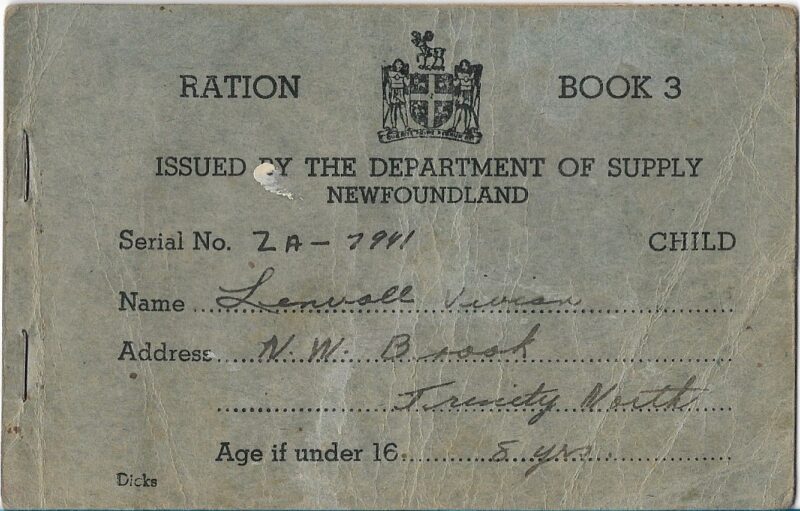 RATION BOOK 3
ISSUED BY THE DEPARTMENT OF SUPPLY
NEWFOUNDLAND
Serial No. ZA - 7941 CHILD
Name Lenvall Vivian
Address N. W. Brook
Trinity North
Age if under 16 8 yrs.
Dicks